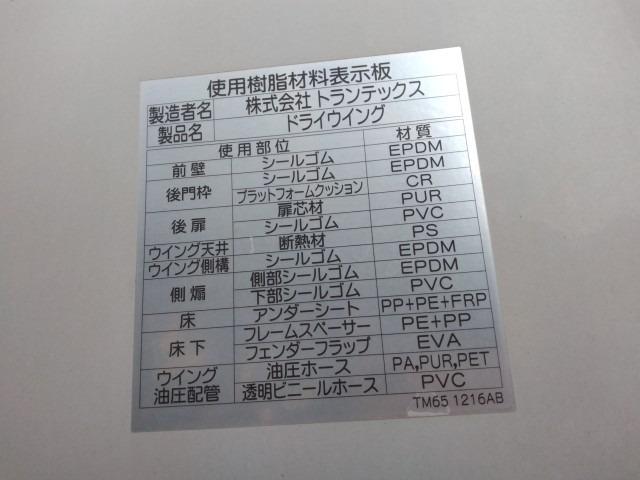 使用樹脂材料表示板
製造者名 株式会社 トランテックス
製品名 ドライウイング
使用部位 材質
前壁 シールゴム EPDM
後門枠 シールゴム EPDM
プラットフォームクッション CR
後扉 扉芯材 PUR
シールゴム PVC
ウイング天井 断熱材 PS
ウイング側構 シールゴム EPDM
側煽 側部シールゴム EPDM
下部シールゴム PVC
床 アンダーシート PP+PE+FRP
床下 フレームスペーサー PE+PP
フェンダーフラップ EVA
ウイング油圧配管 油圧ホース PA,PUR,PET
透明ビニールホース PVC
TM65 1216AB